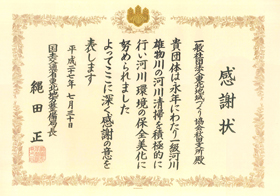 感謝状
一般社団法人東北地域づくり協会 殿
貴団体は永年にわたり一級河川
雄物川の河川清掃を積極的に
行い河川環境の保全美化に
努められました
よってここに深く感謝の意を
表します
平成二十七年七月三十日
国土交通省東北地方整備局長
縄田 正